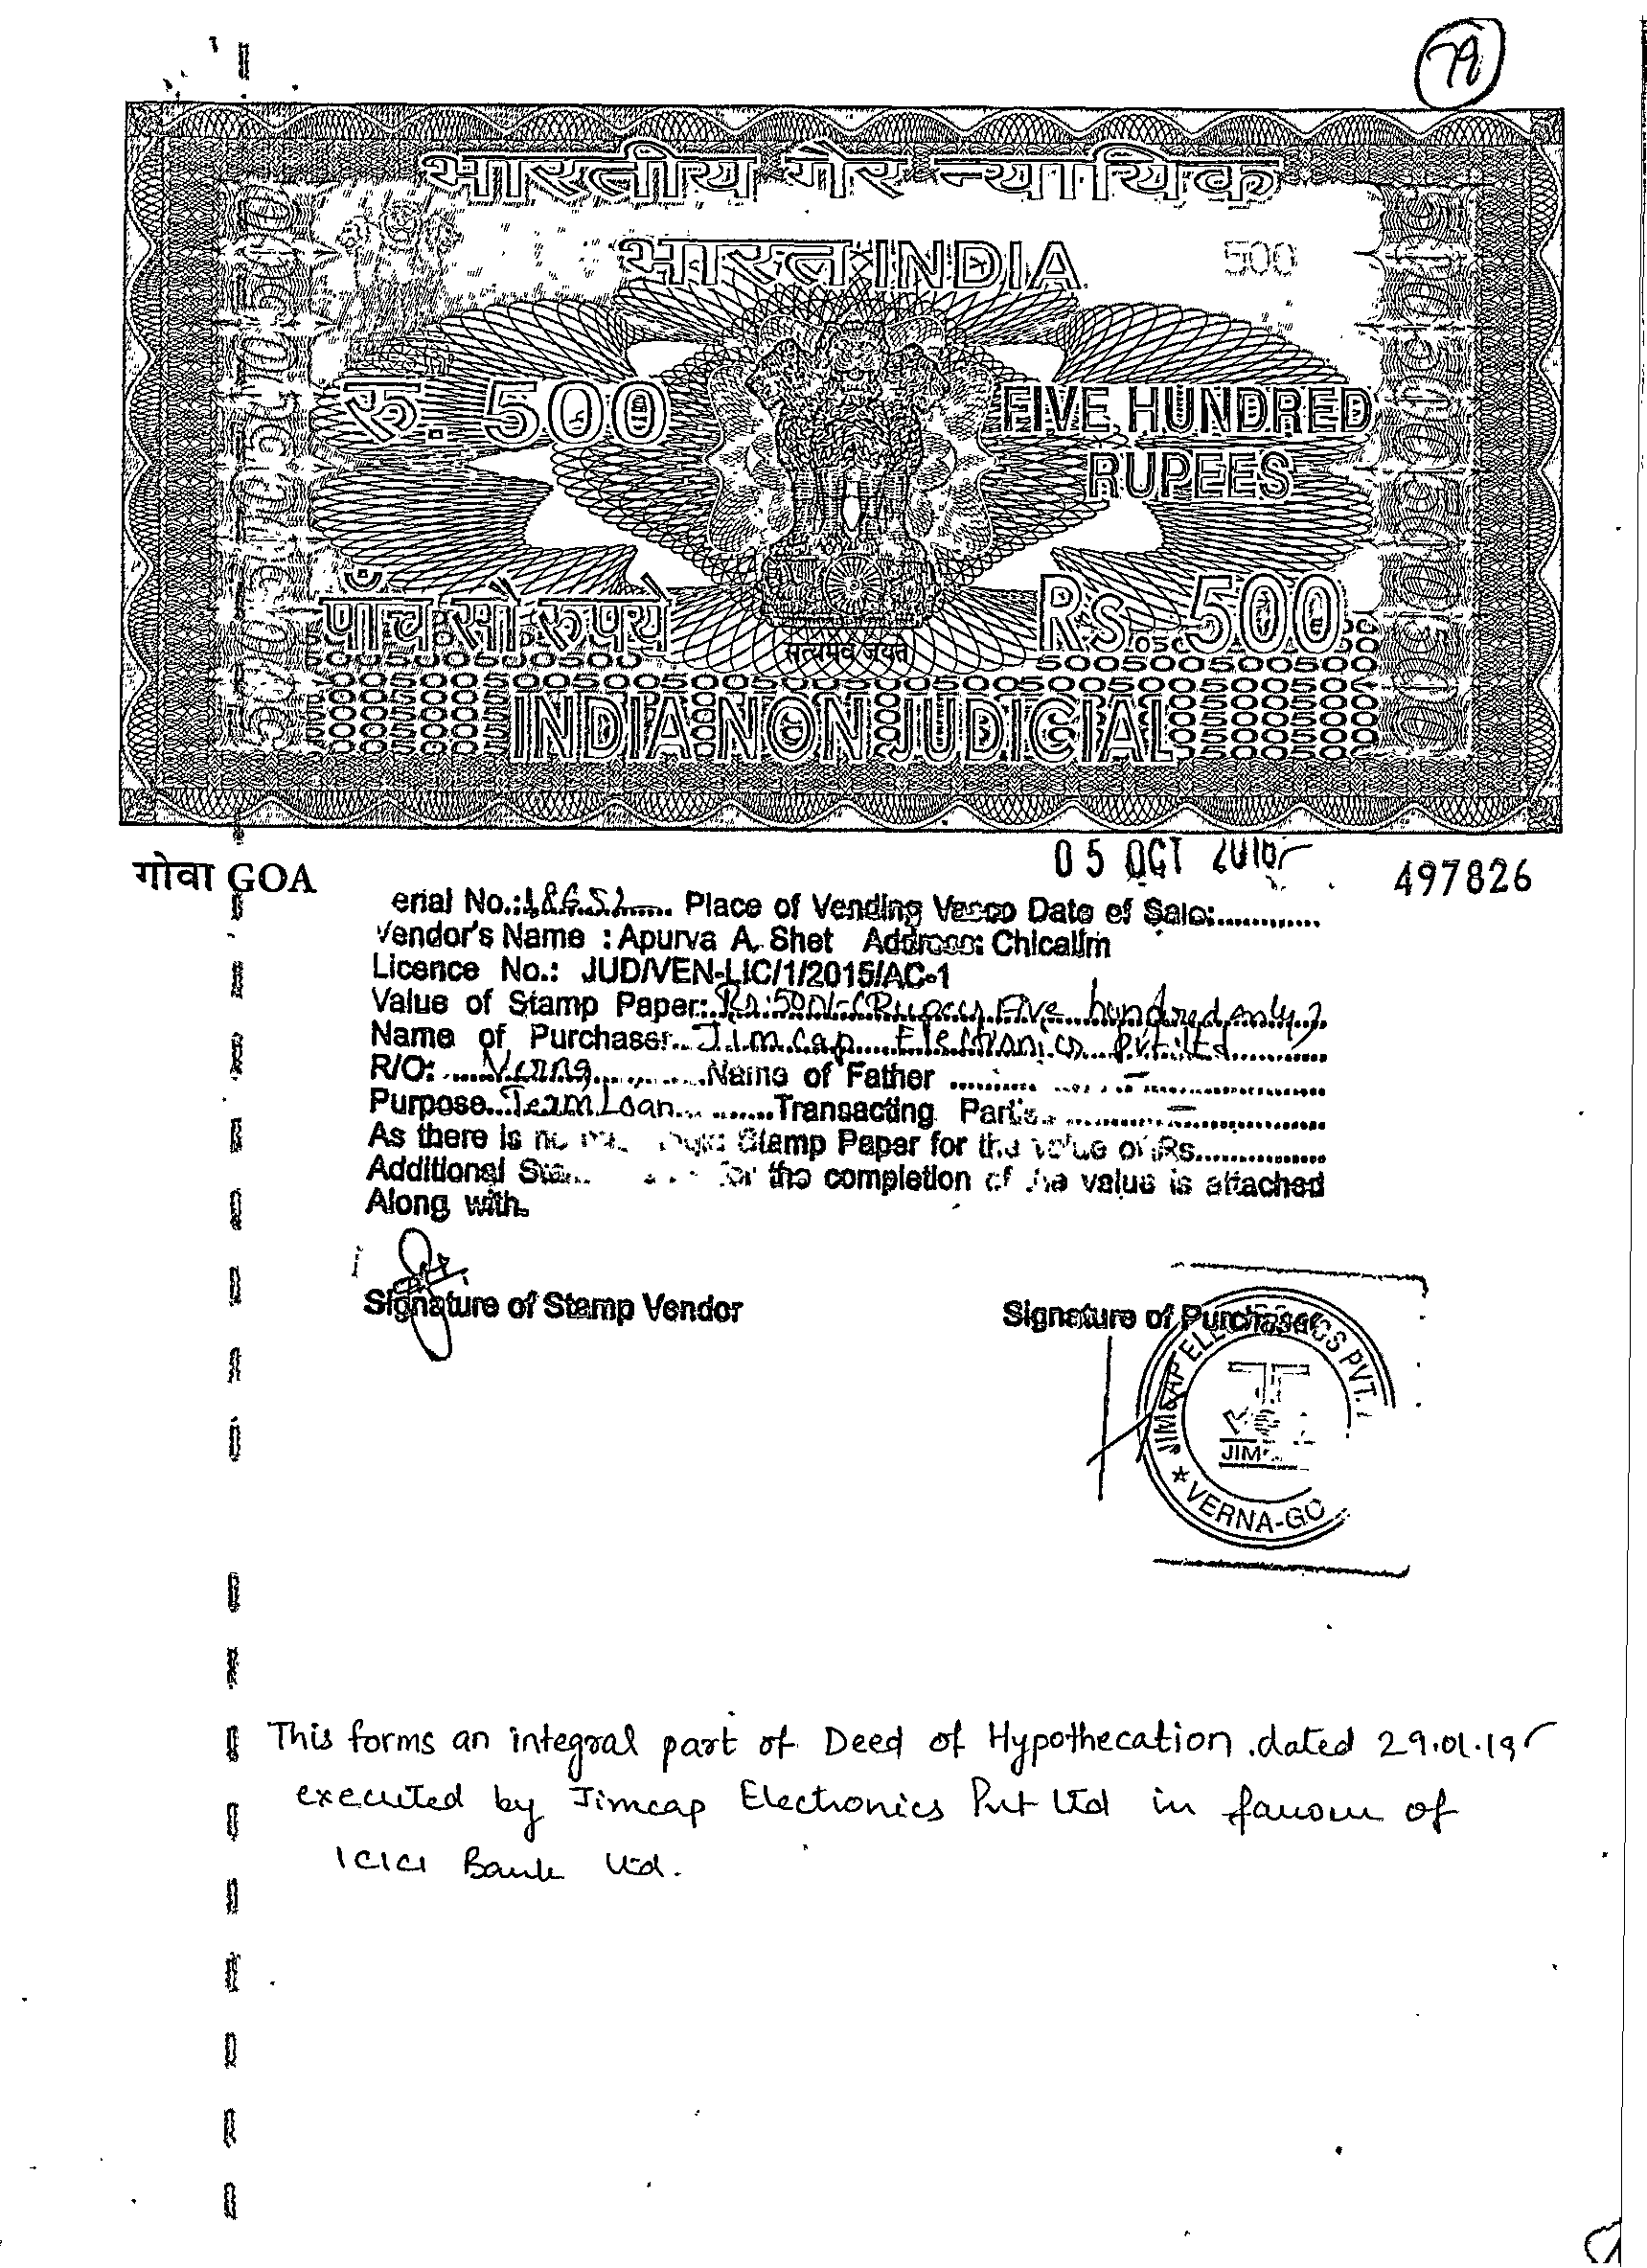 79
भारतीय गैर न्यायिक
भारत INDIA
500
रु. 500
FIVE HUNDRED
RUPEES
पाँच सौ रुपये
Rs. 500
सत्यमेव जयते
INDIA NON JUDICIAL
05 OCT
गोवा GOA
497826
erial No.: Place of Vending Vasco Date of Sale:
Vendor's Name : Apurva A. Shet Address: Chicalim
Licence No.: JUD/VEN-LIC/1/2015/AC-1
Value of Stamp Paper: Rs. 500/- (Rupees Five hundred only)
Name of Purchaser Jimcap Electronics Pvt. Ltd
R/O: Verna Name of Father –
Purpose Team Loan Transacting Partis –
As there is no Stamp Paper for the value of Rs.
Additional for the completion of the value is attached
Along with.
Signature of Stamp Vendor
Signature of Purchaser
JIMCAP ELECTRONICS PVT.
JIM
★ VERNA-GO
This forms an integral part of Deed of Hypothecation dated
executed by Jimcap Electronics Pvt Ltd in favour of
ICICI Bank Ltd.